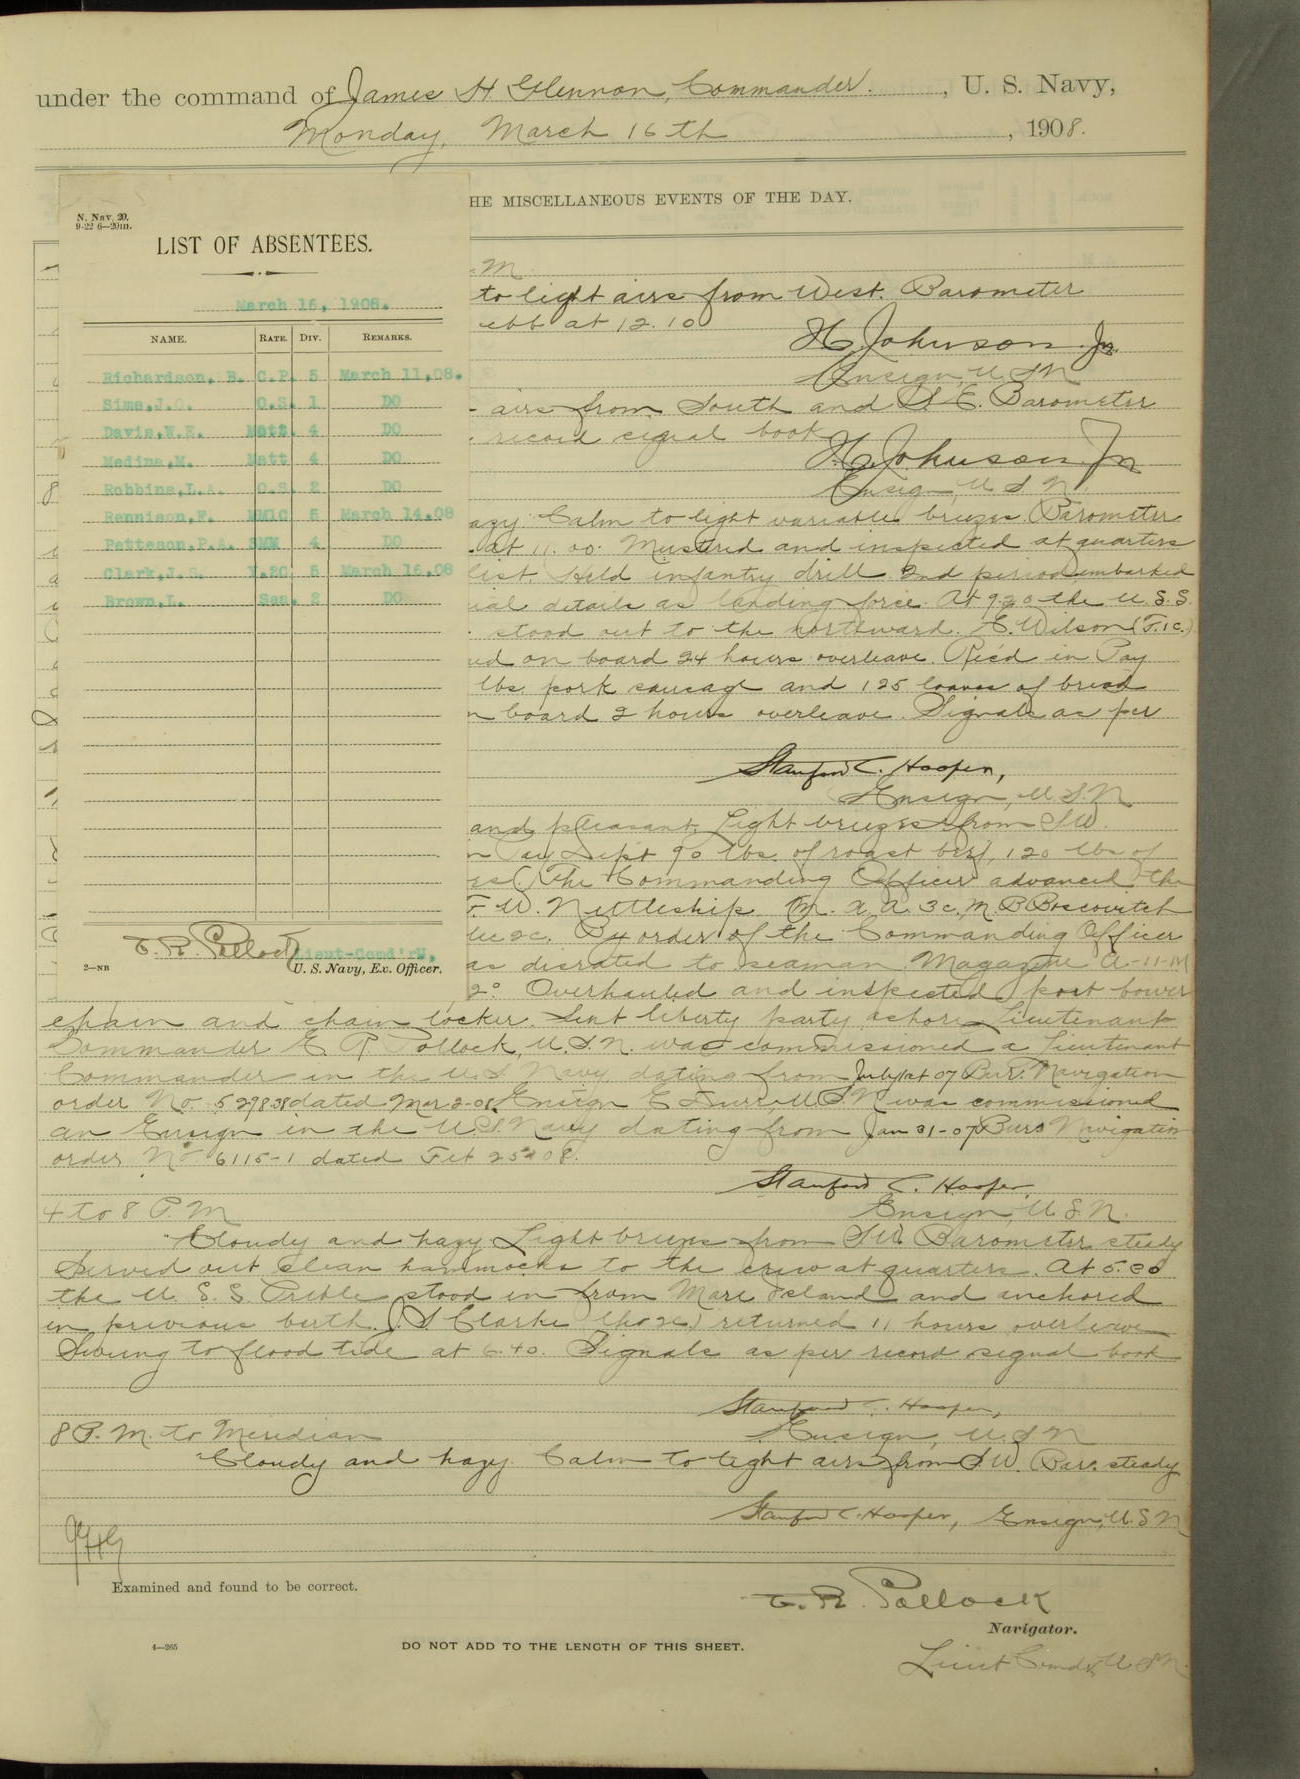 under the command of James H Glennon, Commander. , U. S. Navy,
Monday, March 16th , 1908.
HE MISCELLANEOUS EVENTS OF THE DAY.
N. Nav. 20.
9-22 6—20m.
LIST OF ABSENTEES.
March 16, 1908.
NAME. RATE. DIV. REMARKS.
Richardson, B. C.P. 5 March 11,08.
Sims,J.O. O.S. 1 DO
Davis,W.E. Matt. 4 DO
Medina,M. Matt 4 DO
Robbins,L.A. O.S. 2 DO
Rennison,F. MM1C 5 March 14,08
Petteson,P.A. SMM 4 DO
Clark,J.S. Y.2C 5 March 16,08
Brown,L. Sea. 2 DO
E. R. Pollock Lieut-Comd'r,
2—NB U. S. Navy, Ex. Officer.
M
to light airs from West. Barometer
ebb at 12.10
H. Johnson Jr.
Ensign, U.S.N
airs from South and S.E. Barometer
record signal book
H. Johnson Jr
Ensign, U.S.N.
azy Calm to light variable breezes Barometer
at 11.00. Mustered and inspected at quarters
list Held infantry drill 2nd period embarked
ial details as landing force. At 9.20 the U.S.S.
stood out to the northward. E. Wilson (F.1c.)
ed on board 24 hours overleave. Rec'd in Pay
lbs. pork sausage and 125 loaves of bread
n board 2 hours overleave. Signals as per
Stanford C. Hooper,
Ensign, U.S.N
and pleasant. Light breezes from SW.
n Pay Dept 90 lbs. of roast beef, 120 lbs of
The Commanding Officer advanced the
F W. Nettleship. M. a. a. 3c, M. B Boscovitch
Elec 2c. By order of the Commanding Officer
as disrated to seaman. Magazine A-11-M
2° Overhauled and inspected port bower
chain and chain locker. Sent liberty party ashore. Lieutenant
Commander E. R. Pollock, U.S.N. was commissioned a Lieutenant
Commander in the U.S. Navy dating from July 1st 07 Bur. Navigation
order No. 5298-38 dated Mar 2-08. Ensign E Durr U.S.N was commissioned
an Ensign in the U.S. Navy dating from Jan 31-07 Buro Navigation
order No 6115-1 dated Feb 25-08.
Stanford C. Hooper,
4 to 8 P.M Ensign, U.S.N.
Cloudy and hazy Light breezes from SW. Barometer steady
Served out clean hammocks to the crew at quarters. At 5.20
the U. S. S. Preble stood in from Mare Island and anchored
in previous berth. J. S Clarke (Yeo 2c) returned 11 hours overleave
Swung to flood tide at 6.40. Signals as per record signal book
Stanford C. Hooper,
8 P.M. to Meridian Ensign, U.S.N
Cloudy and hazy. Calm to light airs from S.W. Bar. steady
Stanford C. Hooper, Ensign, U.S.N
JHG
Examined and found to be correct.
E. R. Pollock
Navigator.
4—265 DO NOT ADD TO THE LENGTH OF THIS SHEET.
Lieut Comdr, U.S.N.